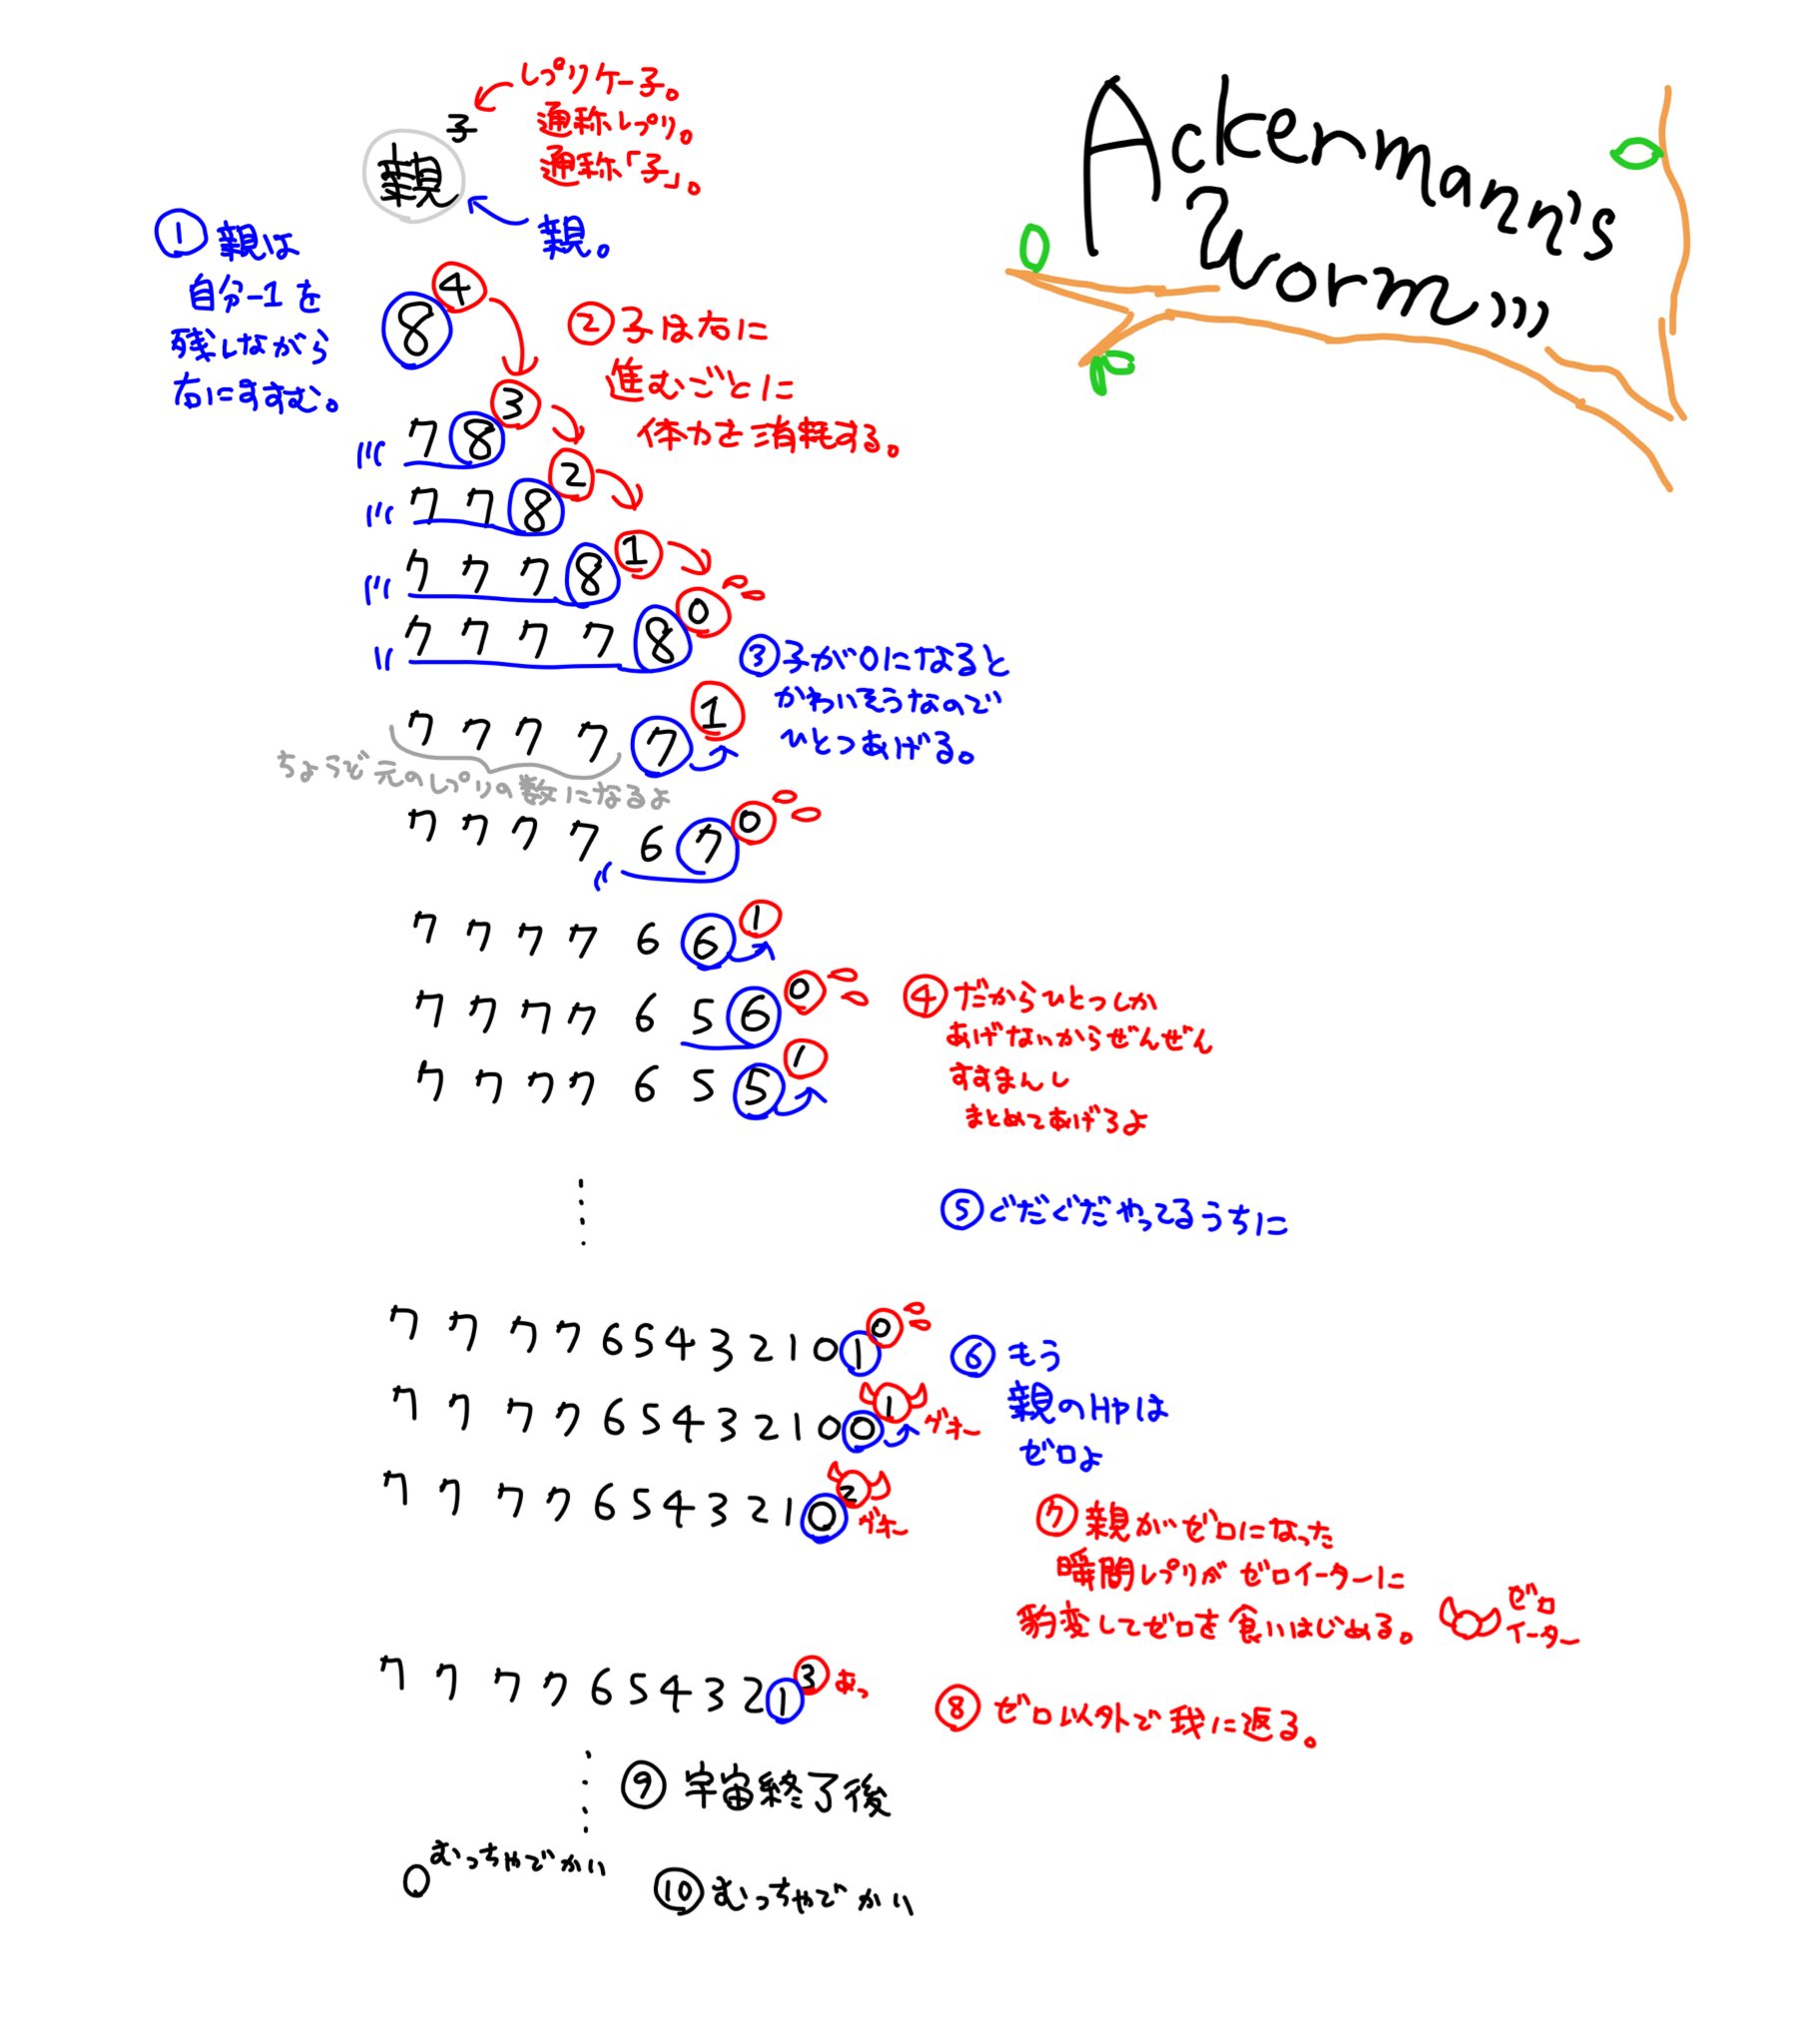 Ackermann's
Worm
子
親
レプリケー子。
通称レプリ。
通称「子」。
親。
① 親は
自分-1を
残しながら
右にすすむ。
8 4
② 子は右に
進むごとに
体力を消耗する。
7 8 3
7 7 8 2
7 7 7 8 1
7 7 7 7 8 0
③ 子が0になると
かわいそうなので
ひとつあげる。
7 7 7 7 7 1
ちょうど元のレプリの数になるよ
7 7 7 7 6 7 0
7 7 7 7 6 6 1
7 7 7 7 6 5 6 0
7 7 7 7 6 5 5 1
④ だからひとつしか
あげないからぜんぜん
すすまんし
まとめてあげろよ
⑤ ぐだぐだやってるうちに
7 7 7 7 6 5 4 3 2 1 0 1 0
⑥ もう
親のHPは
ゼロよ
7 7 7 7 6 5 4 3 2 1 0 0 1
グオー
7 7 7 7 6 5 4 3 2 1 0 2
グオー
⑦ 親がゼロになった
瞬間レプリがゼロイーターに
豹変してゼロを食いはじめる。
ゼロ
イーター
7 7 7 7 6 5 4 3 2 1 3
あっ
⑧ ゼロ以外で我に返る。
⑨ 宇宙終了後
0 むっちゃでかい
⑩ むっちゃでかい